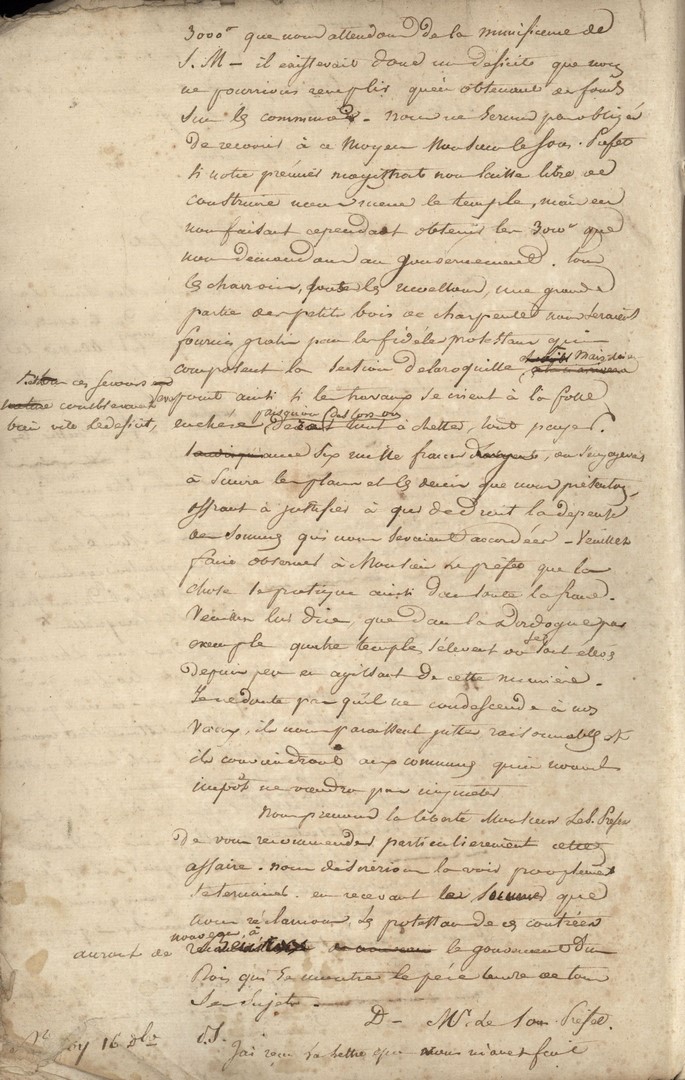 3000f que nous attendons de la munificence de
S. M – il existerait donc un deficite que nous
ne pourrions remplir qu'en obtenant des fonds
sur les communes – nous ne serions pas obligés
de recourir à ce moyen Monsieur le Sous. Prefet
si notre premier magistrat nous laisse libre de
construire nous meme le temple, mais en
nous faisant cependant obtenir les 3000f que
nous demandons au gouvernement. tous
les charrois, toutes les une grande
partie des petits bois de charpente nous seraient
fournis gratis par les fidéles protestans qui
composent la section delaroquille Mais
ces secours
combleraient
bien vite le deficit,
point ainsi si les travaux se crient à la folle
enchere tout à chetter, tout payer.
six mille francs on s'engagerait
à suivre les plans et les devis que nous présentons,
offrant à justifier à qui de droit la depense
des sommes qui nous seraient accordées – Veuillez
faire observer à Monsieur Le préfet que la
chose se pratique ainsi dans toute la france.
Veuillez lui dire, que dans la Dordogne par
exemple quatre temples s'élevent ou se sont élevés
depuis peu en agissant de cette maniére –
Je ne doute pas qu'il ne condescende à nos
Vœux, ils nous paraissent justes raisonnables et
ils conviendront aux communes qu'un nouvel
impôt ne viendra pas inquieter
Nous prenons la liberté Monsieur Le S. Prefet
de vous recommander particulierement cette
affaire – nous desirerions la voir promptement
terminée en recevant les sommes que
nous reclamons. Les protestans de ces contrées
nouveau, à
auront de le gouvernement d'un
Rois qui se montre le pére tendre de tous
ses sujets –
D – Mr. de Sous Prefet.
16 Xbre
d. S.
J'ai reçu la lettre que vous m'avez fait